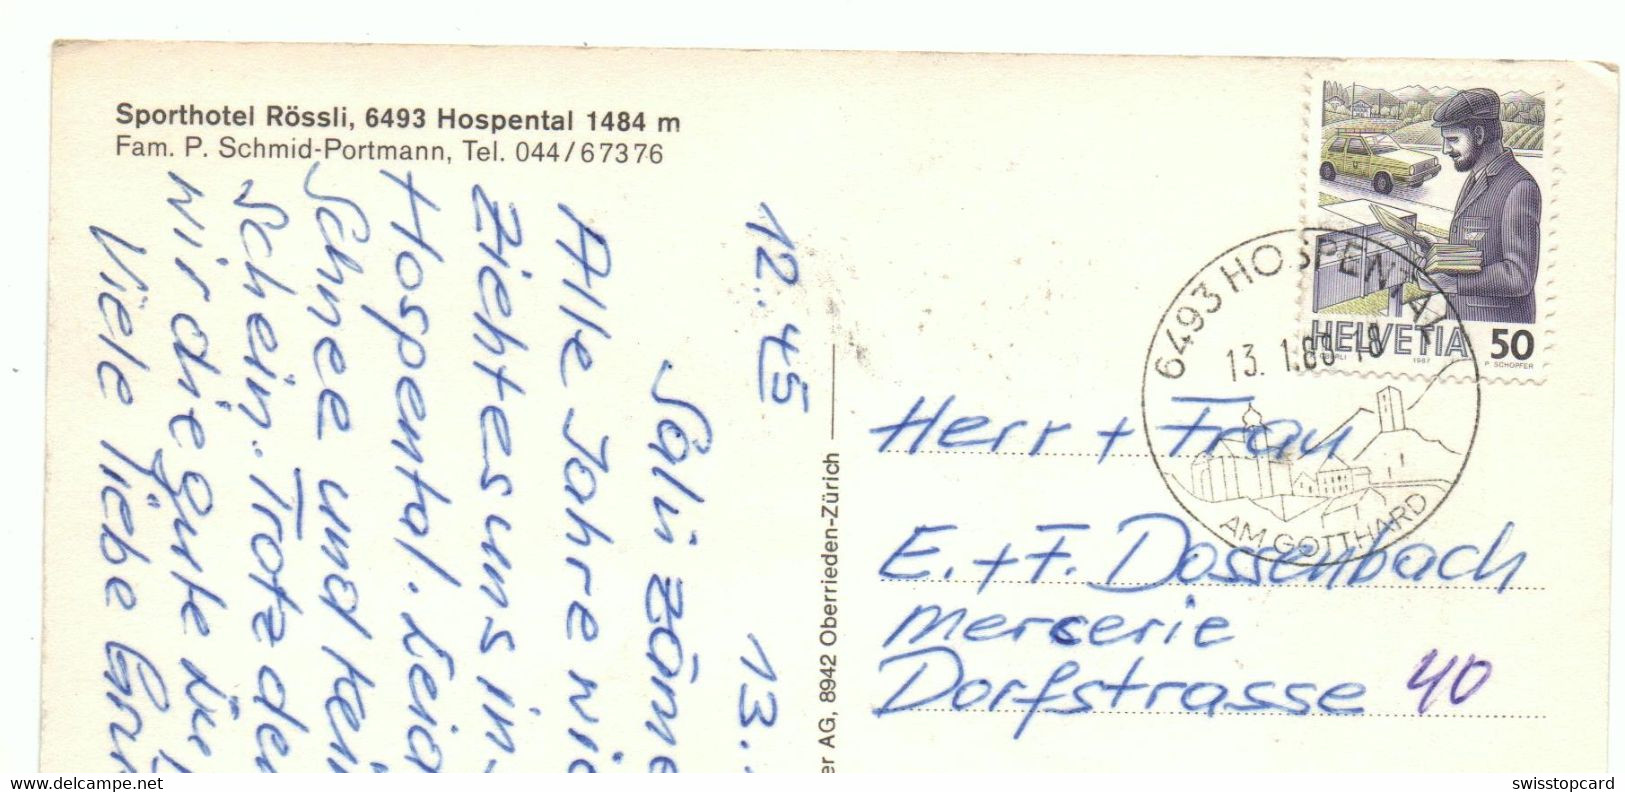 Sporthotel Rössli, 6493 Hospental 1484 m
Fam. P. Schmid-Portmann, Tel. 044/67376
12.45
13.
Sali zäme
Alle Jahre
zieht es uns in
Hospental.
Schnee und kein
Schein. Trotz
wir die gute
Viele liebe
AG, 8942 Oberrieden-Zürich
HELVETIA 50
OBERLI 1987 P. SCHOPFER
6493 HOSPENTAL
13. 1.89 18
AM GOTTHARD
Herr + Frau
E. + F. Dossenbach
Mercerie
Dorfstrasse 40
swisstopcard